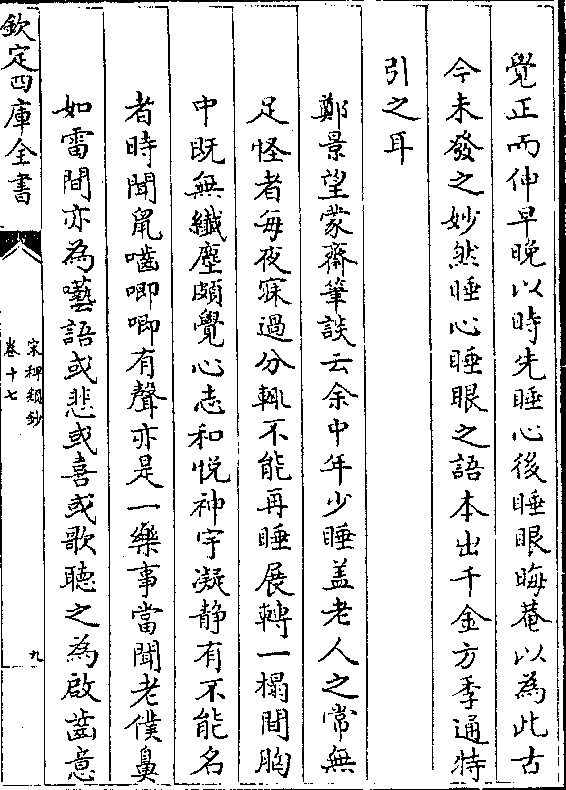 覺正而伸早晚以時先睡心後睡眼晦菴以為此古
今未發之妙然睡心睡眼之語本出千金方季通特
引之耳
鄭景望蒙齋筆談云余中年少睡蓋老人之常無
足怪者每夜寐過分輒不能再睡展轉一榻間胸
中既無纎塵頗覺心志和悅神宇凝静有不能名
者時聞鼠嚙唧唧有聲亦是一樂事當聞老僕鼻
如雷間亦為囈語或悲或喜或歌聽之為啟齒意
欽定四庫全書
宋稗類鈔
卷十七
九